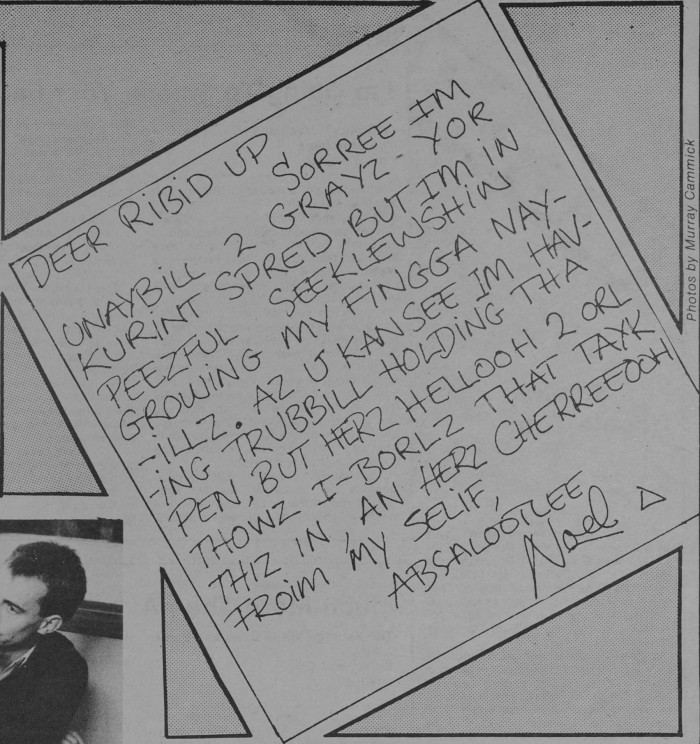 DEER RIBID UP
SORREE IM
UNAYBILL 2 GRAYZ - YOR
KURINT SPRED, BUT I'M IN
PEEZFUL SEEKLEWSHIN
GROWING MY FINGGA NAY-
-ILLZ. AZ U KANSEE IM HAV-
-ING TRUBBILL HOLDING THA
PEN, BUT HERZ HELLOOH 2 ORL
THOWZ I-BORLZ THAT TAYK
THIZ IN, AN HERZ CHERREEOOH
FROIM MY SELIF,
ABSALOOTLEE
Noel
Photos by Murray Cammick